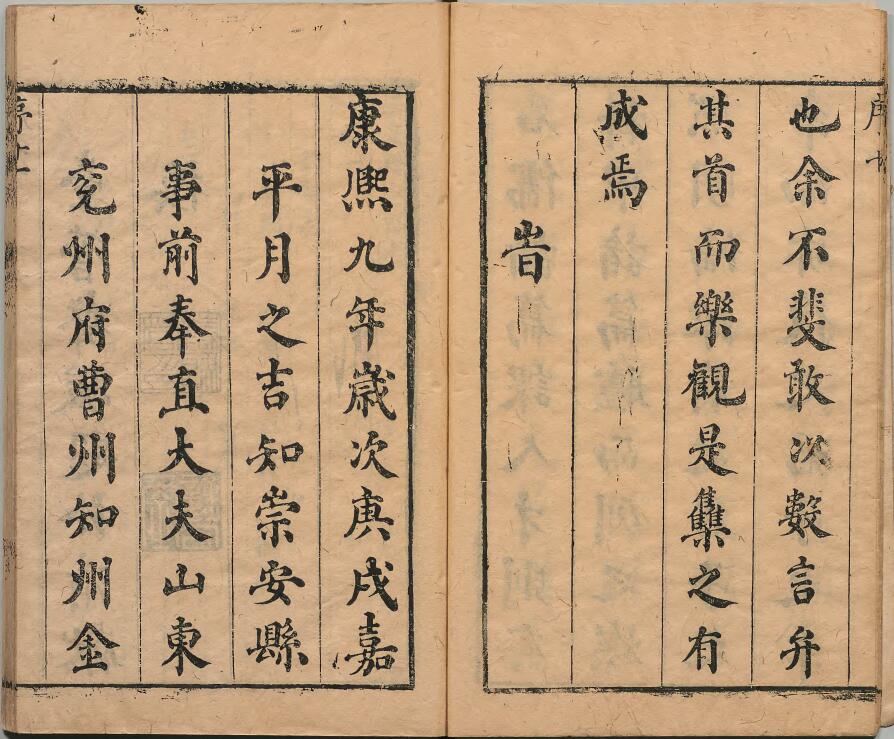 也余不斐敢以數言弁
其首而樂觀是雧之有
成焉
旹
康熙九年歲次庚戌嘉
平月之吉知崇安縣
事前奉直大夫山東
兖州府曹州知州金